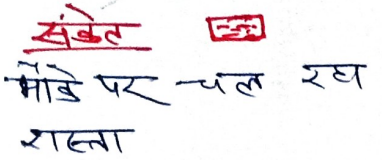 संकेत
मोडे पर चल रहा
रास्ता